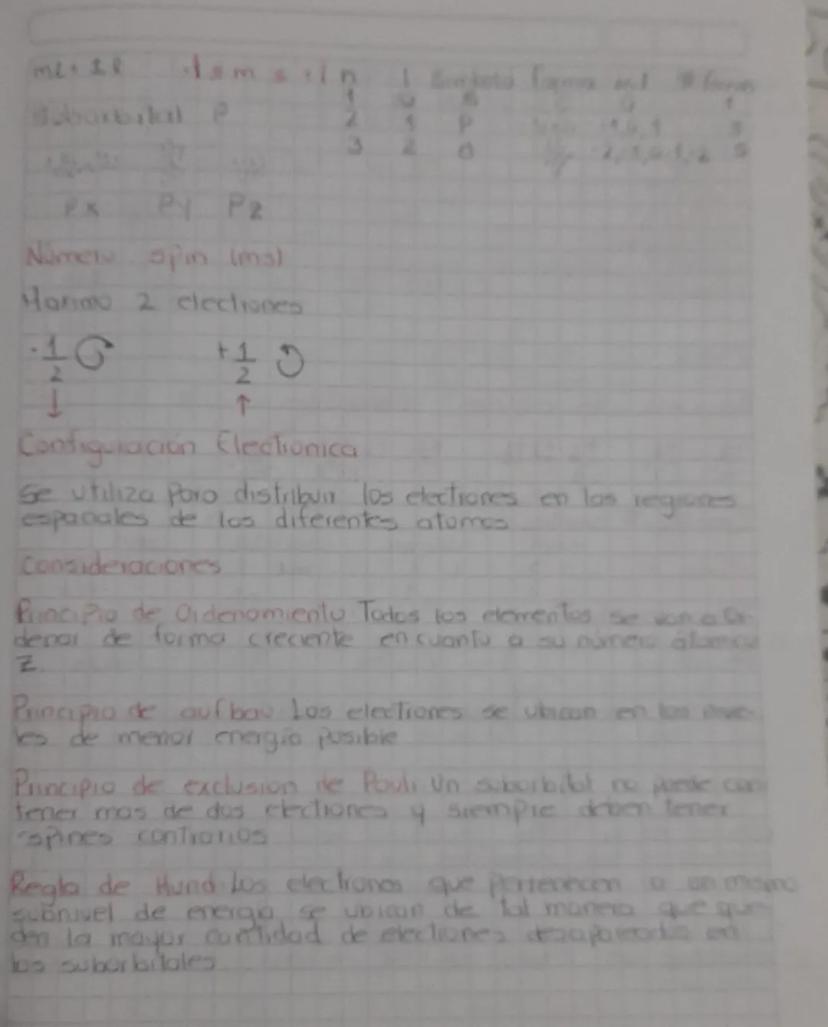 n l
Suborbital P
1
2 1 P 3
3 2 5
Px Py Pz
Número spin (ms)
Maximo 2 electrones
-1/2 +1/2
↓ ↑
Configuración Electronica
Se utiliza Para distribuir los electrones en las regiones
espaciales de los diferentes atomos
Consideraciones
Principio de Ordenamiento Todos los elementos se van a or
denar de forma creciente en cuanto a su número atomico
Z.
Principio de aufbau Los electrones se ubican en los nive-
les de menor energia posible
Principio de exclusion de Pauli Un suborbital no puede con
tener mas de dos electrones y siempre deben tener
spines contrarios
Regla de Hund Los electrones que pertenecen a un mismo
subnivel de energia se ubican de tal manera que que
den la mayor cantidad de electrones desapareados en
los suborbitales